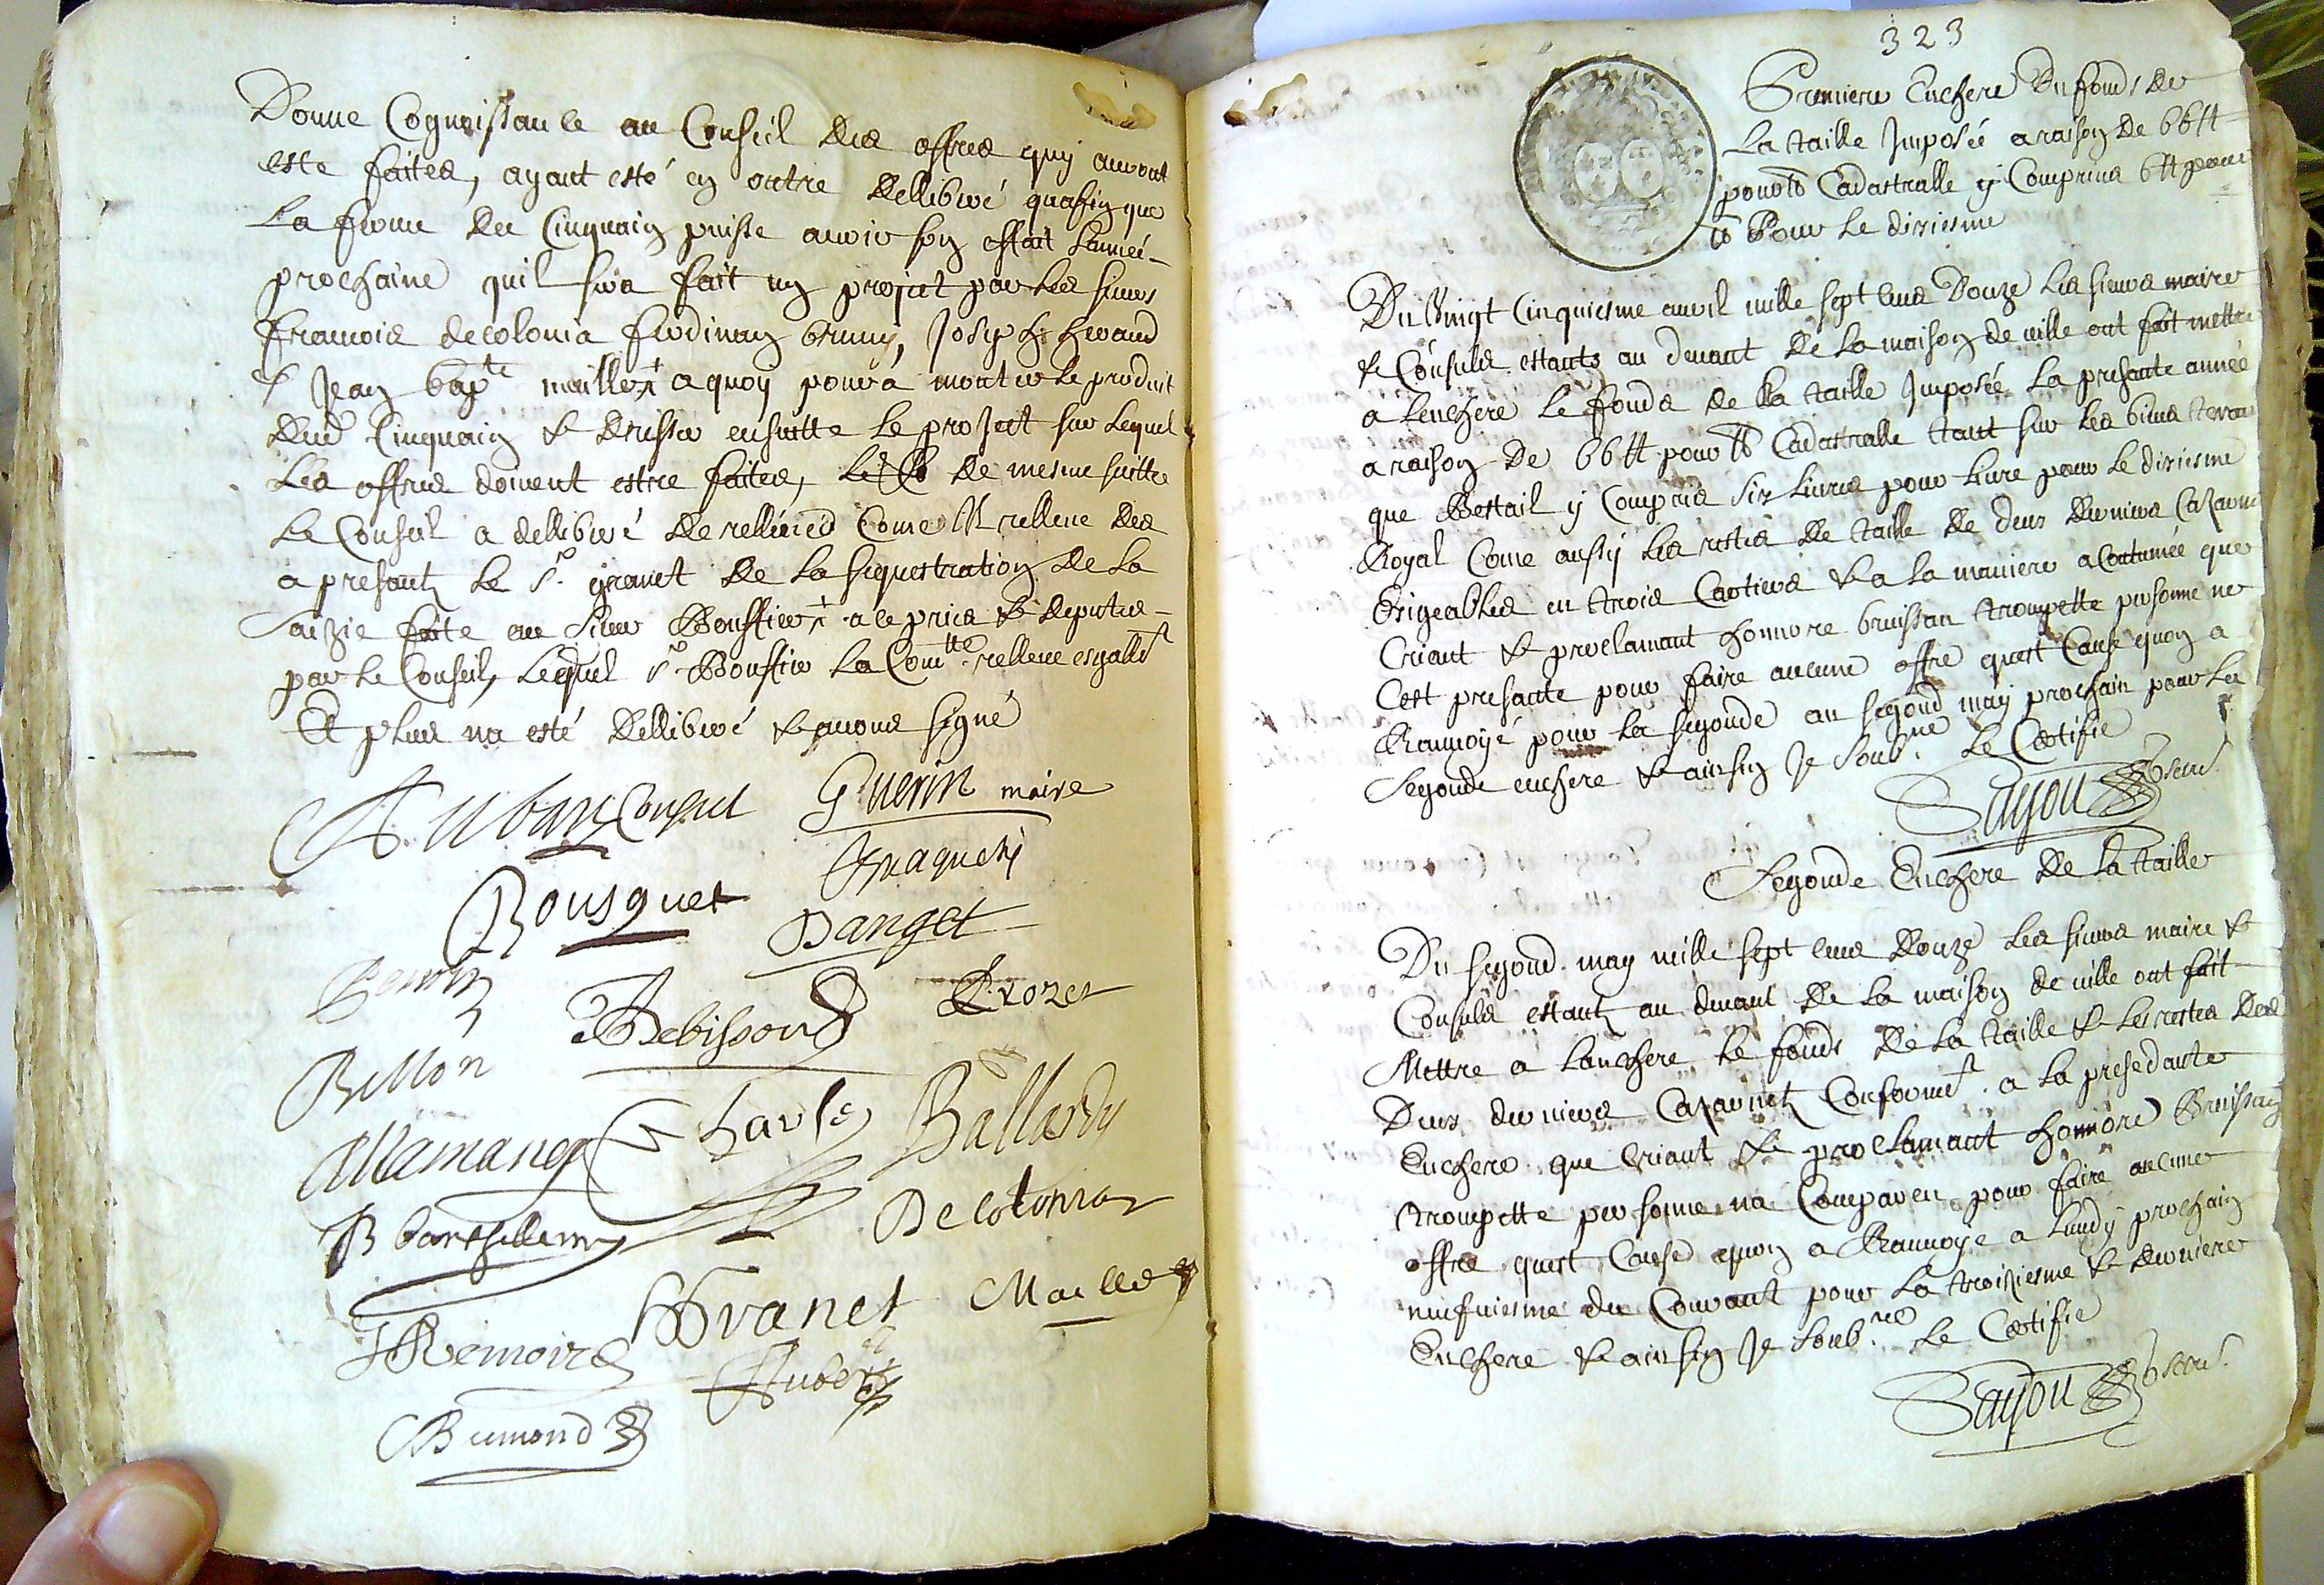 Donne Cognoissance au Conseil des offres quy auront
esté faites, ayant esté en outre dellibéré quafin que
la ferme du Cinquain puisse avoir son effait lannéé
prochaine quil sera fait un projet par les sieurs
francois decolonia ferdinan bruny, Joseph heraud
& Jean bapte mailler a quoy pourra monter le produit
dud Cinquain & dresser ensuitte le project sur lequel
les offres doivent estre faites, de mesme suitte
le Conseil a dellibéré de rellever Come Il relleve des
a presant le sr. granet de la sequestration de la
Saizie faite au sieur Bouffier a ce pries & deputes
par le Conseil, lequel sr. Bouffier la Comtte relleve esgallt
Et plus na esté dellibéré & avons signé
Auban Consul Guerin maire
Bousquet
Danget
Rebissond Crozet
Bellon
Allemand Baltard
B barthellemy Decolonia
Granet Mailler
Remoire
Aubert
Bremond
323
Premiere Enchere du fonds de
la taille Imposéé a raison de 66 ₶
pour ₶ Cadastralle y Comprins 6 ₶ pour
₶ Pour le dixiesme
Du Vingt Cinquiesme avril mille sept cens Douze les sieurs maire
& Consuls estants au devant de la maison de ville ont fait mettre
a lenchere le fonds de la taille Imposée la presante année
a raison de 66 ₶ pour ₶ Cadastralle tant sur les biens terres
que Bestail y Compris six livres pour livre pour le dixiesme
Royal Come aussy les restes de taille de deux derniers Cazarnet
Exigeables en trois Cartiers & a la maniere acoutumée que
Criant & proclamant honnore bruissan trompette personne ne
Cest presante pour faire aucune offre quest Cause quon a
Ranvoyé pour la segonde au segond may prochain pour la
Segonde enchere & ainsin Je soubne. le Certifie
Sayou secre.
Segonde Enchere de la taille
Du segond may mille sept cens Douze les sieurs maire &
Consuls estant au devant de la maison de ville ont fait
Mettre a lanchere le fonds de la taille & les restes des
Deux derniers Cazarnet Conformt. a la presedante
Enchere que Criant & proclamant honnore Bruissan
trompette personne na Comparen pour faire aucune
offre quest Cause quon a Ranvoye a lundy prochain
neufviesme du Courant pour la troiziesme & derniere
Enchere & ainsin Je soubne. le Certifie
Sayou secre.